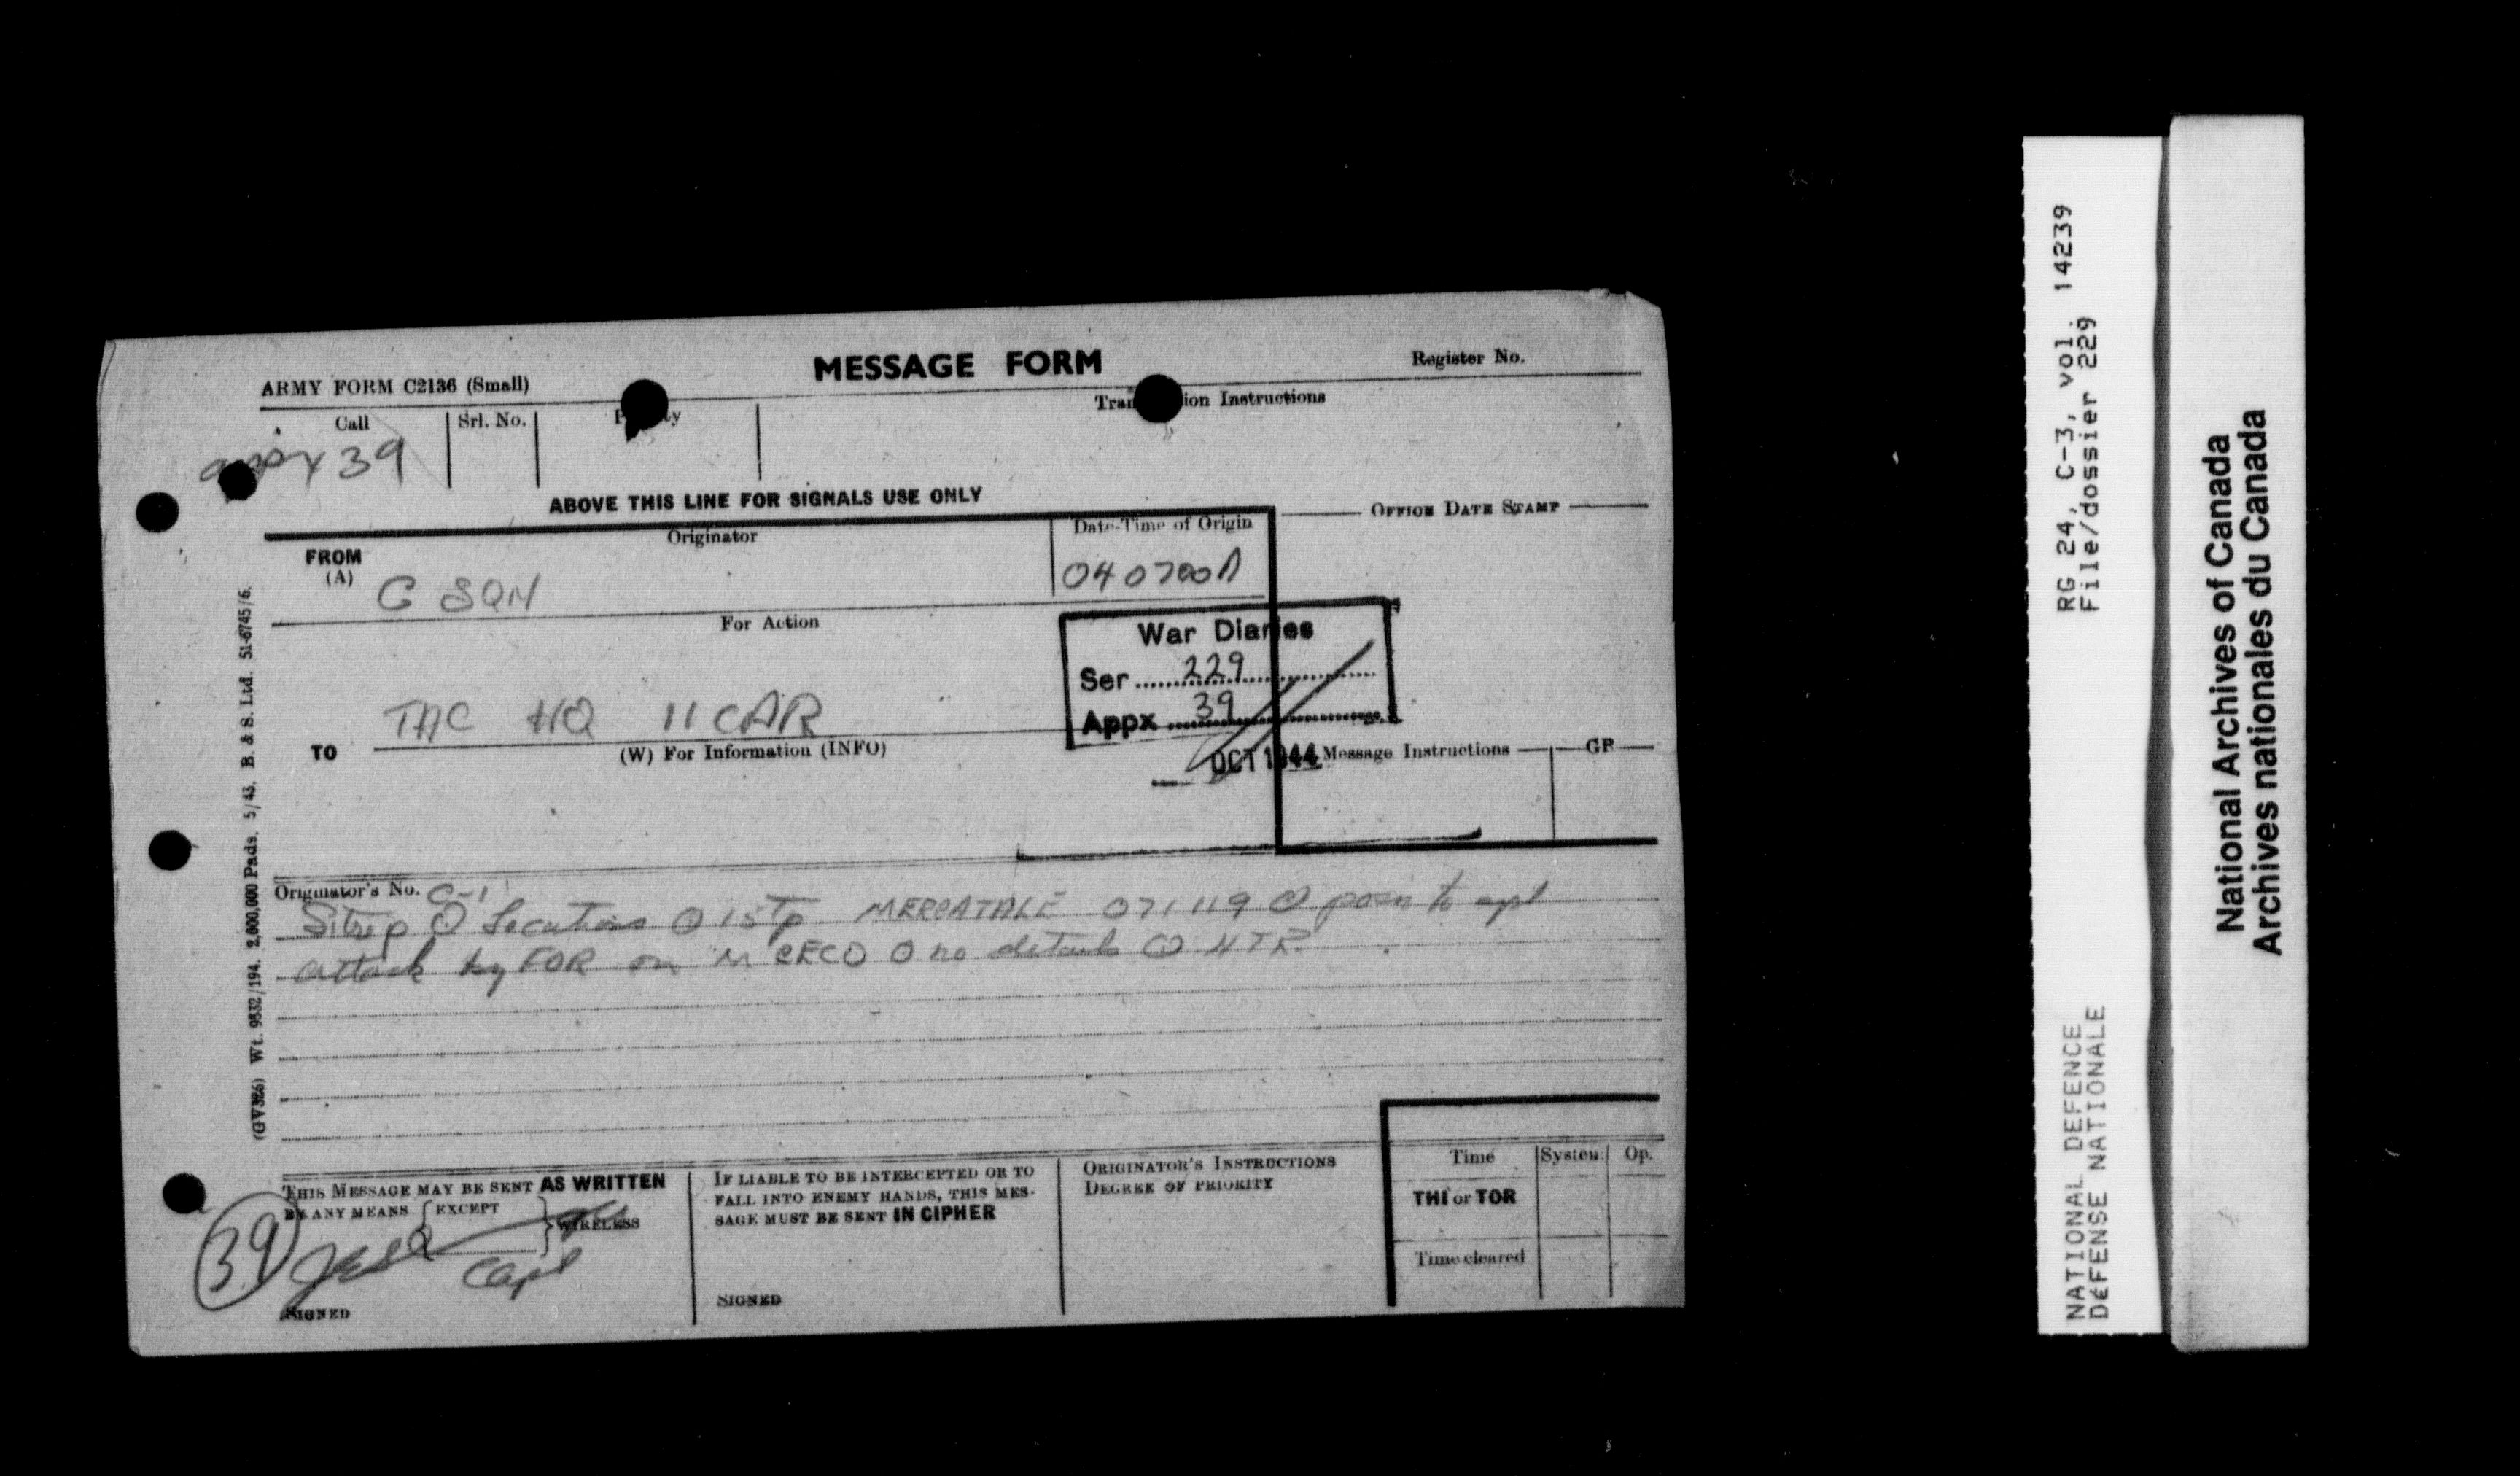 MESSAGE FORM
Register No.
ARMY FORM C2136 (Small)
Call
Srl. No.
Transmission Instructions
appx 39
ABOVE THIS LINE FOR SIGNALS USE ONLY
OFFICE DATE STAMP
Originator
Date-Time of Origin
FROM
(A)
C SQN
040700A
For Action
War Diaries
Ser 229
Appx 39
OCT 1944
TAC HQ 11 CAR
TO
(W) For Information (INFO)
Message Instructions
GR
Originator's No. C-1
Sitrep O Locations O 1st Tp MERCATALE 071119 O posn to spt
attack by FOR on M CECO O no details O NTR.
THIS MESSAGE MAY BE SENT AS WRITTEN
BY ANY MEANS
EXCEPT
WIRELESS
39
Capt
SIGNED
IF LIABLE TO BE INTERCEPTED OR TO
FALL INTO ENEMY HANDS, THIS MES-
SAGE MUST BE SENT IN CIPHER
SIGNED
ORIGINATOR'S INSTRUCTIONS
DEGREE OF PRIORITY
Time
System
Op.
THI or TOR
Time cleared
(GV326) Wt. 9532/194. 2,000,000 Pads. 5/43. B. & S. Ltd. 51-6745/6.
RG 24, C-3, vol. 14239
File/dossier 229
NATIONAL DEFENCE
DÉFENSE NATIONALE
National Archives of Canada
Archives nationales du Canada